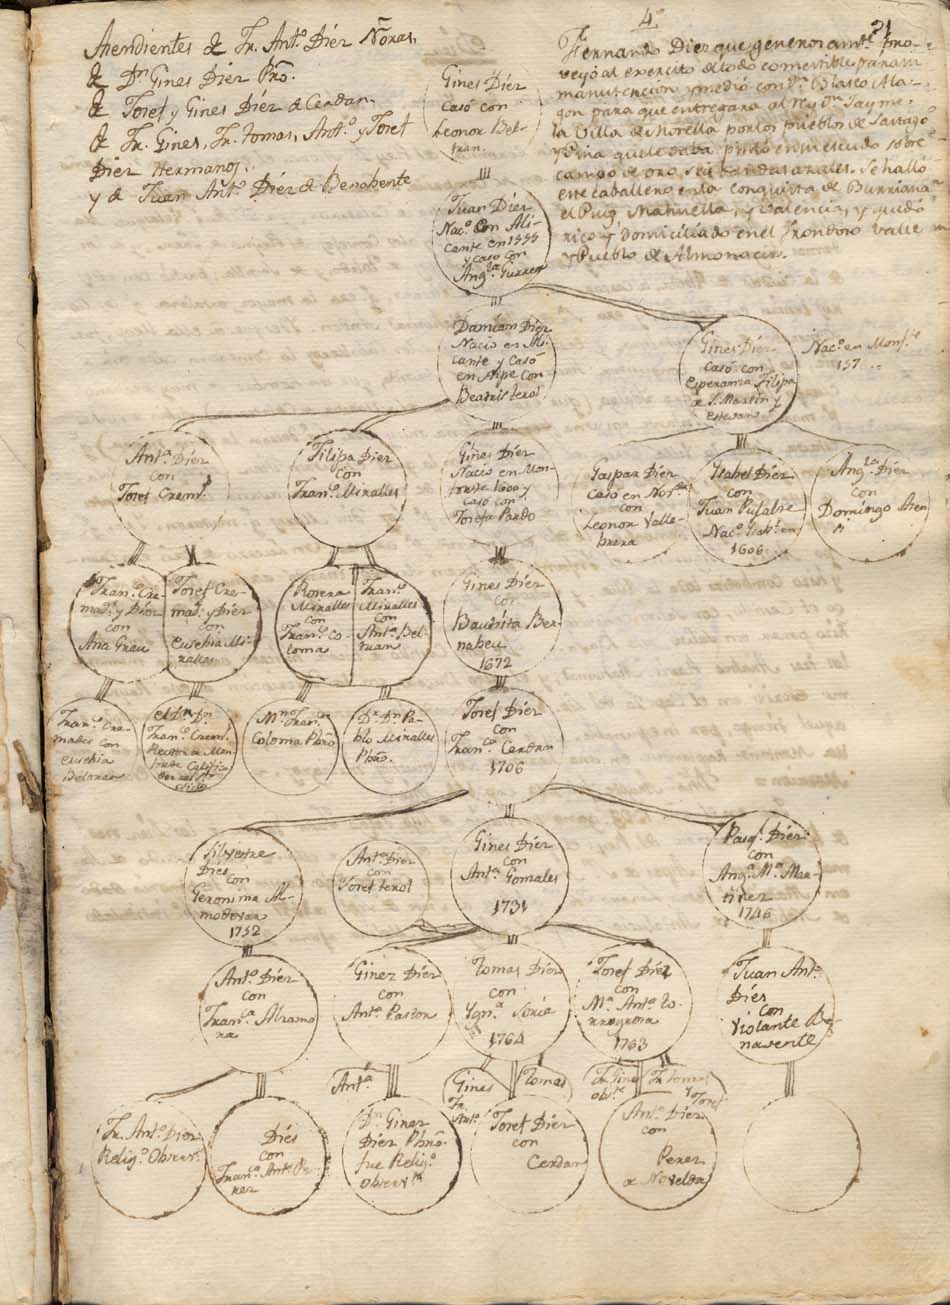 4º
21
Atendientes de Fr. Antº Díez Nõras.
de Dn Gines Díez Pbrõ.
de Josef y Gines Díez de Cerdan.
de Fr. Gines, Fr. tomas, Antº y Josef
Díez Hermanos.
y de Juan Antº Díez de Benabente
Fernando Diez que generosamte pro-
veyó al exercito de todo comestible para su
manutencion y medió con Dn Blasco Ala-
gon para que entregara al Rey Dn Jayme,
la Villa de Morella por los pueblos de Sastago
y Pina que le daba, puso en su escudo sobre
campo de oro seis bandas azules. Se halló
este caballero en la conquista de Burriana
el Puig, y Valencia, y quedó
rico y domiciliado en el frondoso Valle
y Pueblo de Almonacir.
Gines Díez
Casó con
Leonor Bel-
tran.
Juan Díez
Nacº en Ali-
cante en 1555
y casó con
Angla
Damian Díez
Nacio en Ali-
cante y Casó
en Aspe Con
Beatris terol
Gines Díez
casó con
Esperanza Filipa
de S. Martin y
Estevan
Nacº en Monfte
157
Anta Díez
con
Josef Crem.
Filipa Díez
con
Franco Miralles
Gines Díez
Nacio en Mon-
forte 1600 y
casó con
Josefa Pardo
Gaspar Díez
Casó en
con
Leonor Valle-
brera
Isabel Díez
con
Juan
Nacº
1606
Angla Díez
con
Domingo Aten
Franco Cre-
mads y Díez
con
Ana Grau
Josef Cre-
mads y Díez
con
Eusebia Mi-
ralles
Rosera
Miralles
con
Franco Co-
loma
Franco
Miralles
con
Anta Bel-
tran
Gines Díez
con
Bautista Ber-
nabeu
1672
Franco Cre-
mades con
Eusebia
el Dr Dn
Franco Crem.
Rector de Mon-
forte Califica
Mn Franco
Coloma Pbrõ
Dr Dn Pa-
blo Miralles
Pbrõ.
Josef Díez
con
Franca Cerdan
1706
Silvestre
Díes
con
Geronima Al-
modovar
1752
Anta Díez
con
Josef terol
Gines Díez
con
Anta Gonzales
1731
Pasql Díez
con
Anga Mª Mar-
tinez
1746
Antº Díez
con
Franca Altamo
ra
Ginez Díez
con
Anta Pastor
tomas Díez
con
Ygnª Soria
1764
Josef Díez
con
Mª Anta to-
rregrosa
1763
Juan Antº
Díes
con
Violante Be-
navente
Fr. Antº Díez
Religº Observte
Díes
con
Franca Anta Pe-
rez
Anta
Dn Ginez
Díez Pbrõ.
fue Religº
Observte
Gines
tomas
Fr.
Antº
Josef Díez
con
Cerdan
Fr. Gines
obste
Fr. tomas
y Josef
Antº Díez
con
Perez
de Novelda